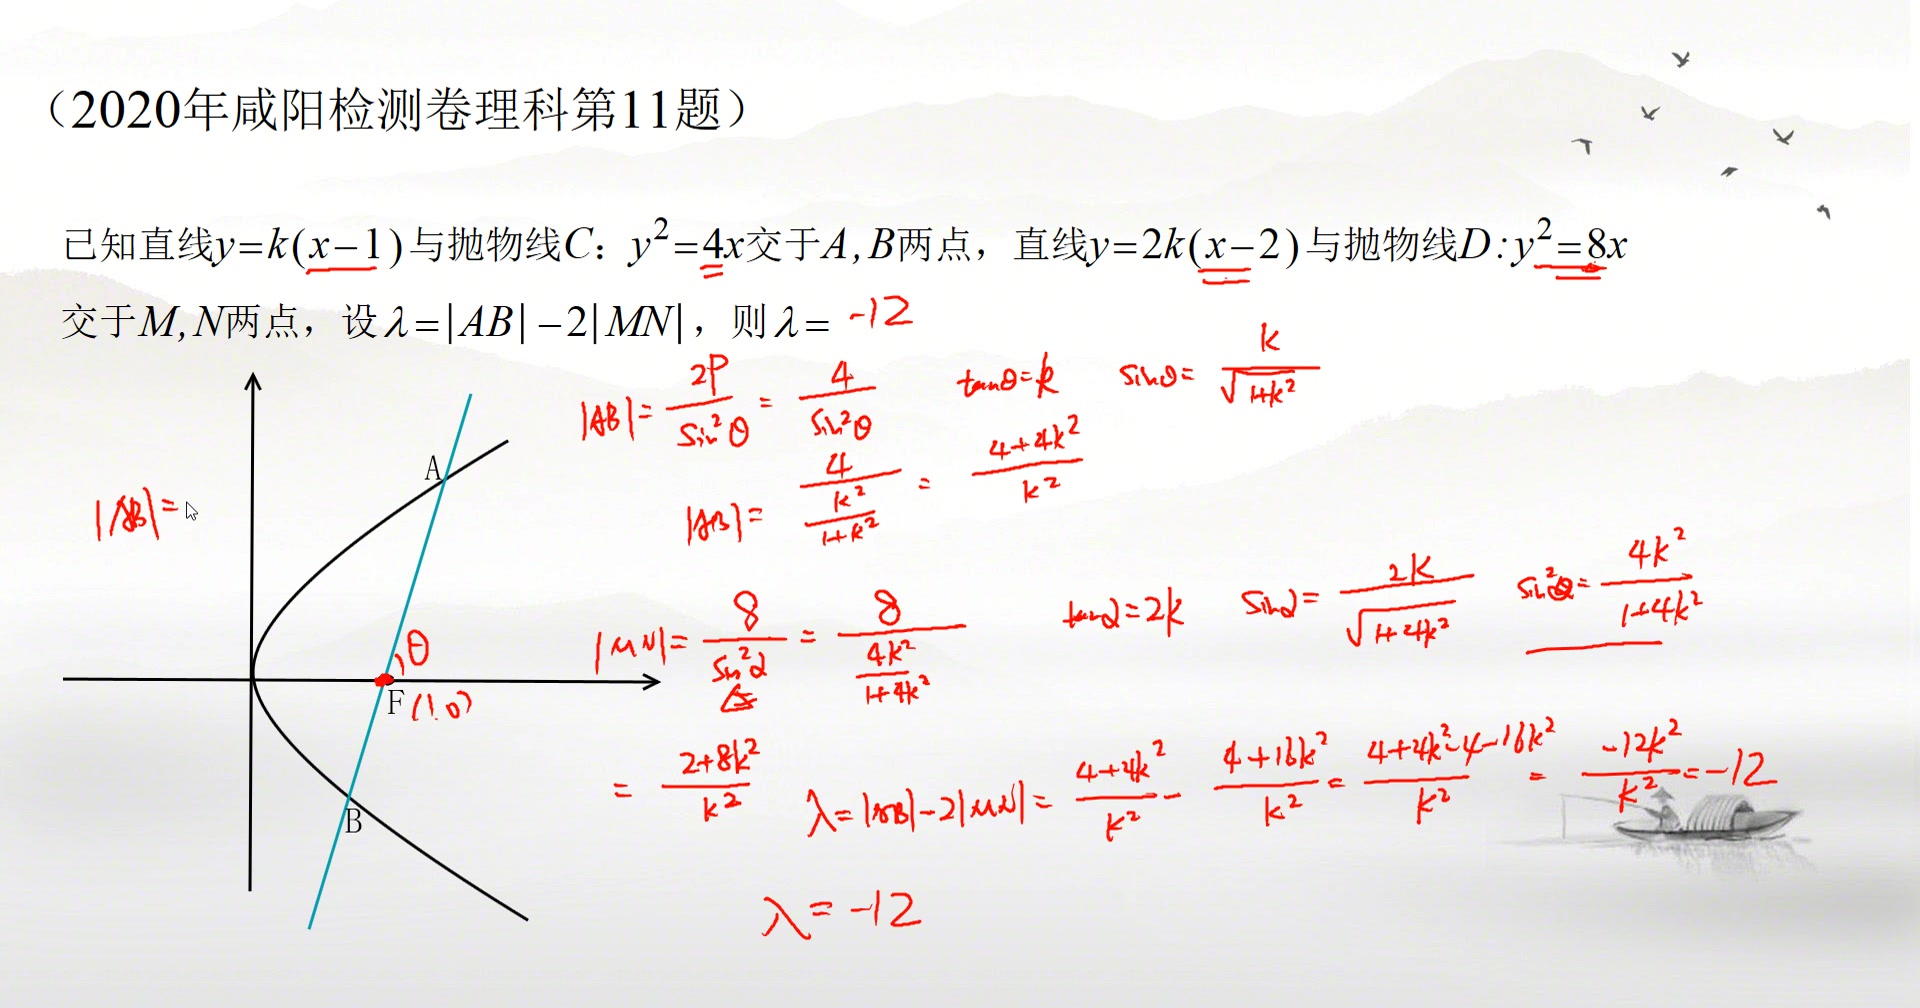 （2020年咸阳检测卷理科第11题）
已知直线y=k(x−1)与抛物线C：y²=4x交于A,B两点，直线y=2k(x−2)与抛物线D:y²=8x
交于M,N两点，设λ=|AB|−2|MN|，则λ= -12
|AB|= 2P/sin²θ = 4/sin²θ tanθ=k sinθ= k/√(1+k²)
|AB|= 4/(k²/(1+k²)) = (4+4k²)/k²
A
|AB|=
|MN|= 8/sin²α = 8/(4k²/(1+4k²)) tanα=2k sinα= 2k/√(1+4k²) sin²α= 4k²/(1+4k²)
θ
F (1,0)
= (2+8k²)/k²
λ=|AB|-2|MN|= (4+4k²)/k² - (4+16k²)/k² = (4+4k²-4-16k²)/k² = -12k²/k² = -12
B
λ=-12